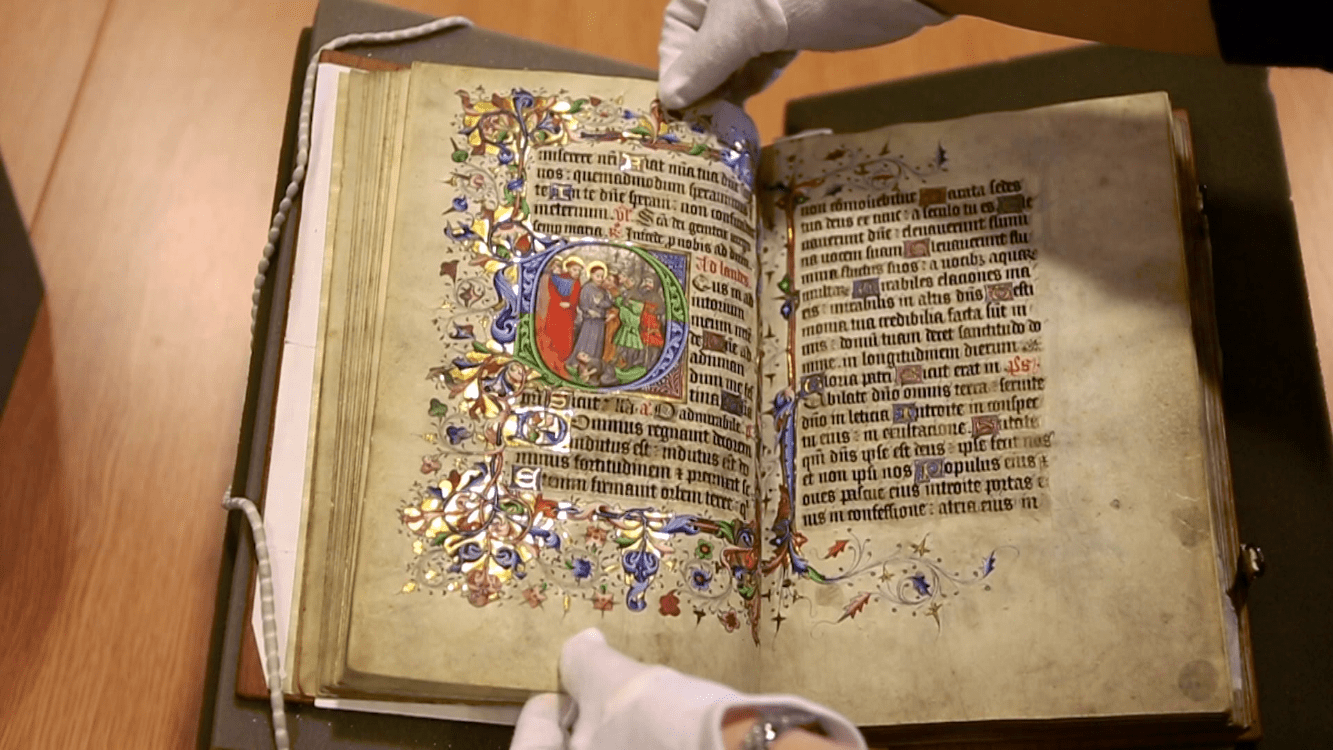 miserere nr̄i fiat mīa tua dn̄e
nos : quemadmodum sperauimus
te In te dn̄e speraui : non
in eternum. Scā dei genitrix
semp maria. Intercede p nobis ad
Ad laudes
Eus in ad
iutorium
meum inte
de Dn̄e ad
adiuuan
dum me fes
tina
Sicut : a. O admirabile.
Dominus regnauit decorem
indutus est : indutus est do
minus fortitudinem ⁊ precinxit se
Etenim firmauit orbem terre : q'
non cōmouebitur Parata sedes
tua deus ex tunc : a seculo tu es Ele
uauerunt dn̄e : eleuauerunt flumi
na uocem suam Eleuauerunt flu
mina fluctus suos : a uocibꝫ aquaꝝ
multaꝝ Mirabiles elaciones ma
ris : mirabilis in altis dn̄s Testi
monia tua credibilia facta sūt ni
mis : domū tuam decet sanctitudo do
mine. in longitudinem dierum
Gloria patri Sicut erat in ps
Iubilate dn̄o omnis terra : seruite
dn̄o in leticia Introite in conspec
tu eius : in exultacione. Scitote
qm̄ dn̄s ipse est deus : ipse fecit nos
et non ipsi nos Populus eius ⁊
oues pascue eius introite portas e
ius in confessione : atria eius in